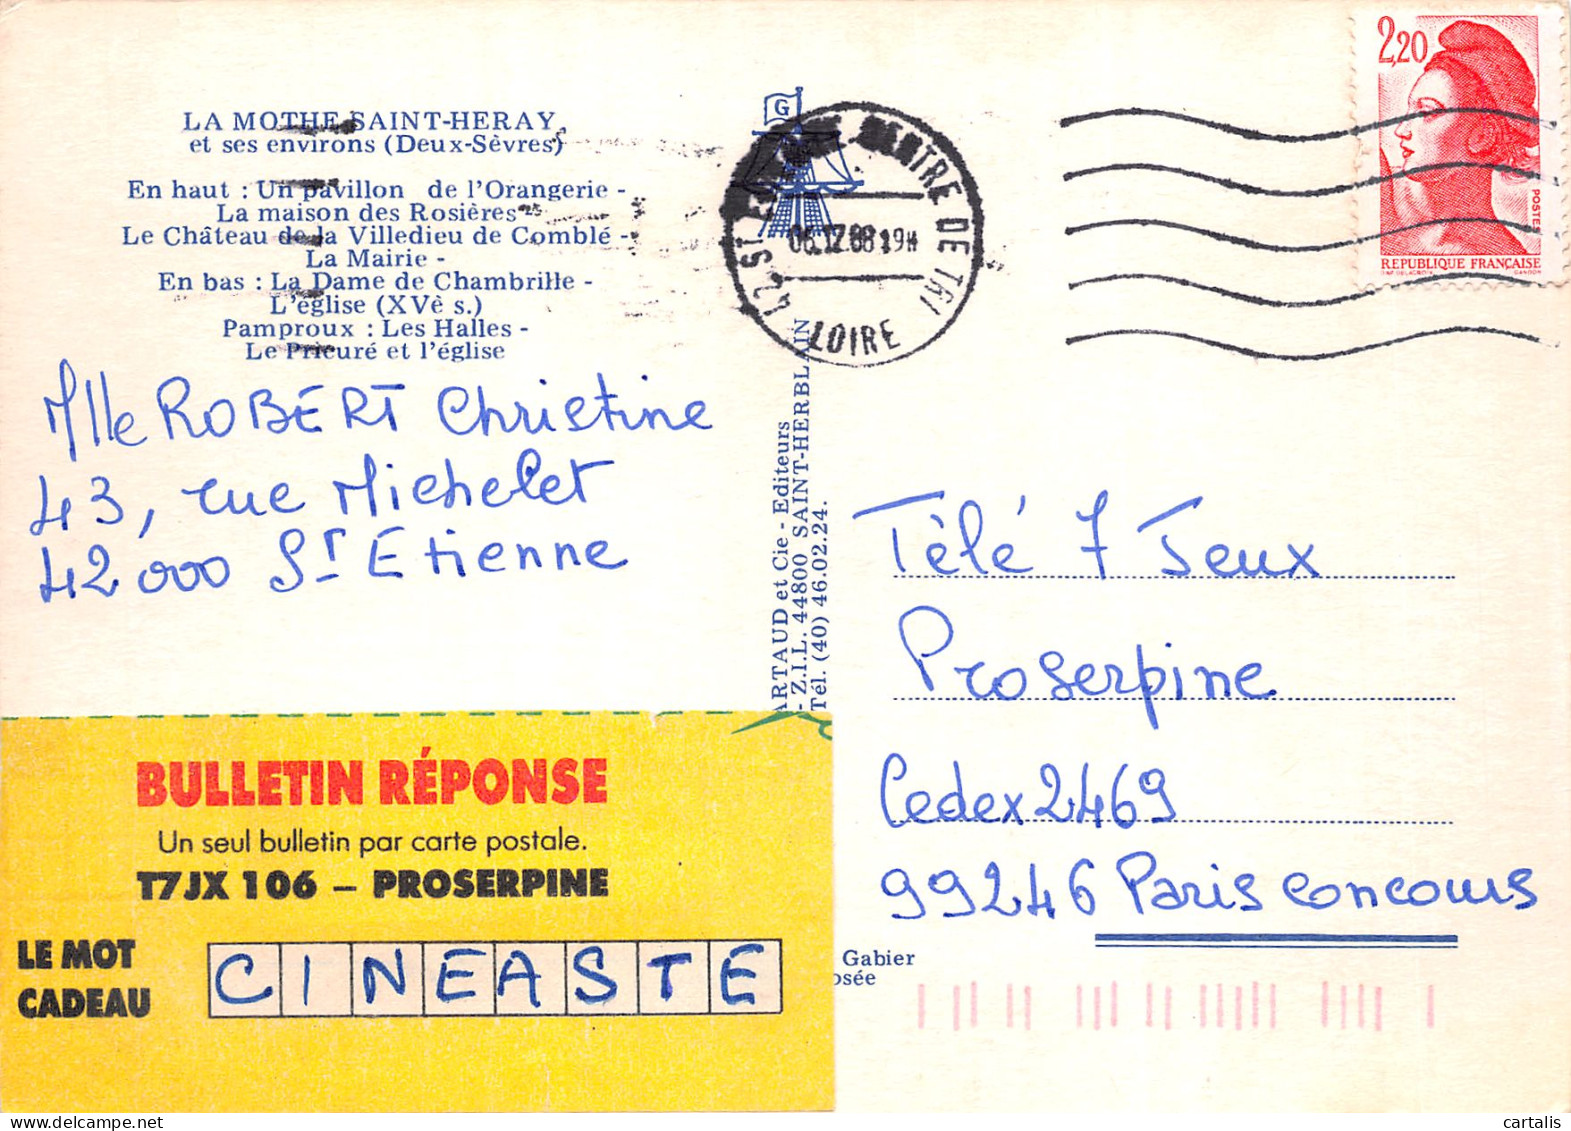 LA MOTHE SAINT-HERAY
et ses environs (Deux-Sèvres)
En haut : Un pavillon de l'Orangerie -
La maison des Rosières
Le Château de la Villedieu de Comblé -
La Mairie -
En bas : La Dame de Chambrille -
L'église (XVè s.)
Pamproux : Les Halles -
Le Prieuré et l'église
Mlle ROBERT Christine
43, rue Michelet
42000 St Etienne
BULLETIN RÉPONSE
Un seul bulletin par carte postale.
T7JX 106 – PROSERPINE
LE MOT
CADEAU
CINEASTE
G
42 ST CENTRE DE TRI
06.12.88 19H
LOIRE
ARTAUD et Cie - Editeurs
- Z.I.L. 44800 SAINT-HERBLAIN
Tél. (40) 46.02.24.
2,20
POSTES
REPUBLIQUE FRANÇAISE
GANDON
Télé 7 Jeux
Proserpine
Cedex 2469
99246 Paris concours
Gabier
osée
cartalis